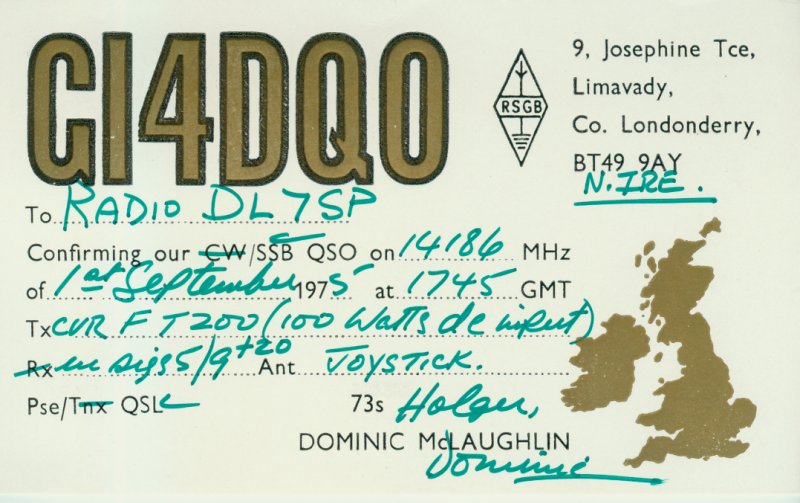 GI4DQO
RSGB
9, Josephine Tce,
Limavady,
Co. Londonderry,
BT49 9AY
N. IRE.
To RADIO DL7SP
Confirming our CW/SSB QSO on 14186 MHz
of 1st September 1975 at 1745 GMT
Tx CVR FT200 (100 Watts dc input)
Rx ur sigs 5/9 +20 Ant JOYSTICK.
Pse/Tnx QSL
73s Holger,
DOMINIC McLAUGHLIN
Dominic